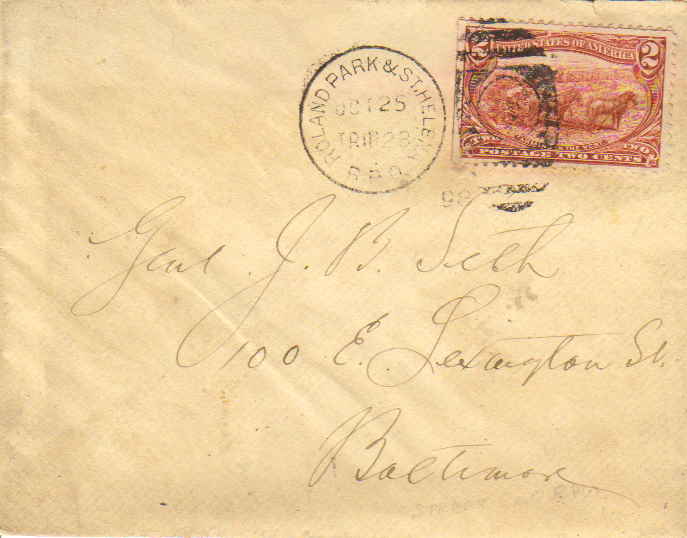 ROLAND PARK & ST. HELENA
OCT 25
TRIP 28
R.P.O.
2 UNITED STATES OF AMERICA 2
TWO TWO
POSTAGE TWO CENTS
98
Genl. J. B. Seth
100 E. Lexington St.
Baltimore